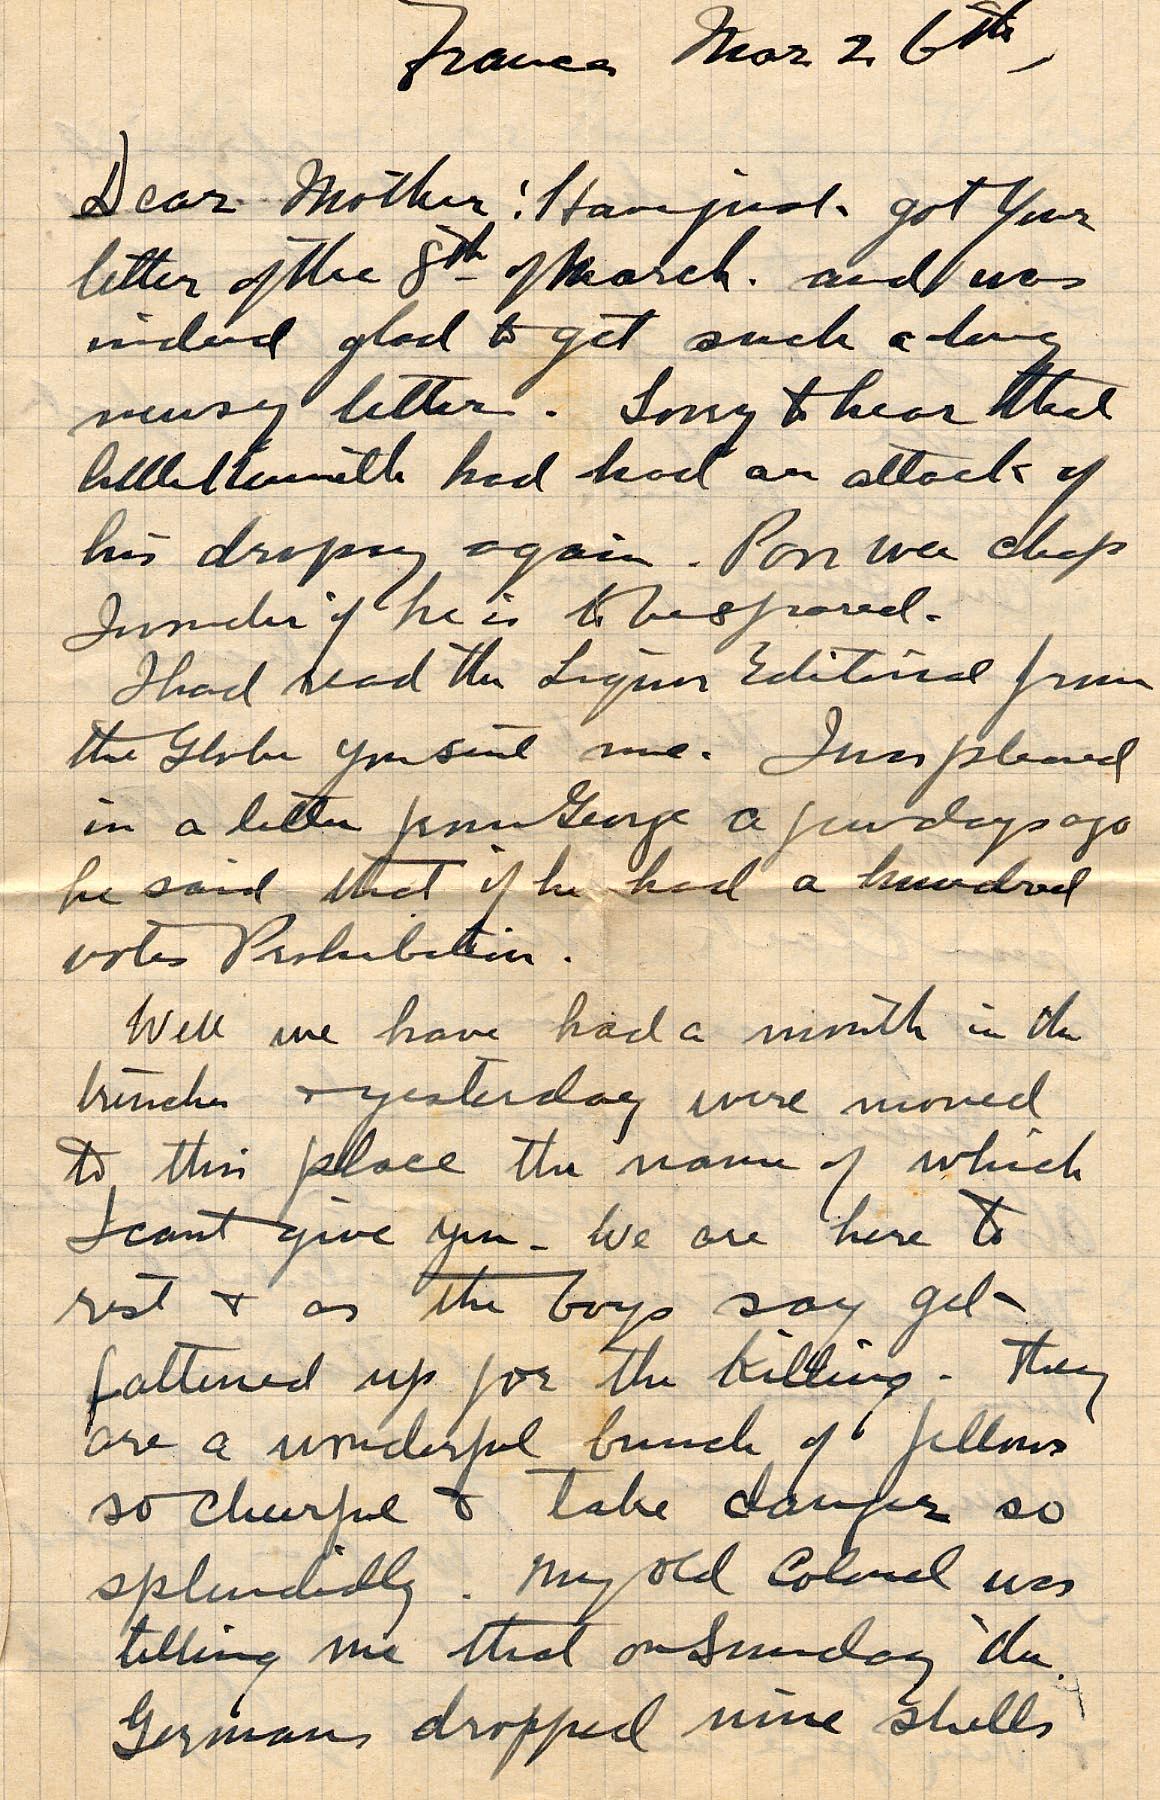 France Mar 26th,
Dear Mother: Have just got your
letter of the 8th of March. and was
indeed glad to get such a long
newsy letter. Sorry to hear that
little had had an attack of
his dropsy again. Poor wee chap
I wonder if he is to be spared.
I had read the Liquor Editorial from
the Globe you sent me. I was pleased
in a letter from George a few days ago
he said that if he had a hundred
votes Prohibition.
Well we have had a month in the
trenches & yesterday were moved
to this place the name of which
I cant give you. We are here to
rest & as the boys say get
fattened up for the killing. They
are a wonderful bunch of fellows
so cheerful & take danger so
splendidly. My old Colonel was
telling me that on Sunday the
Germans dropped nine shells